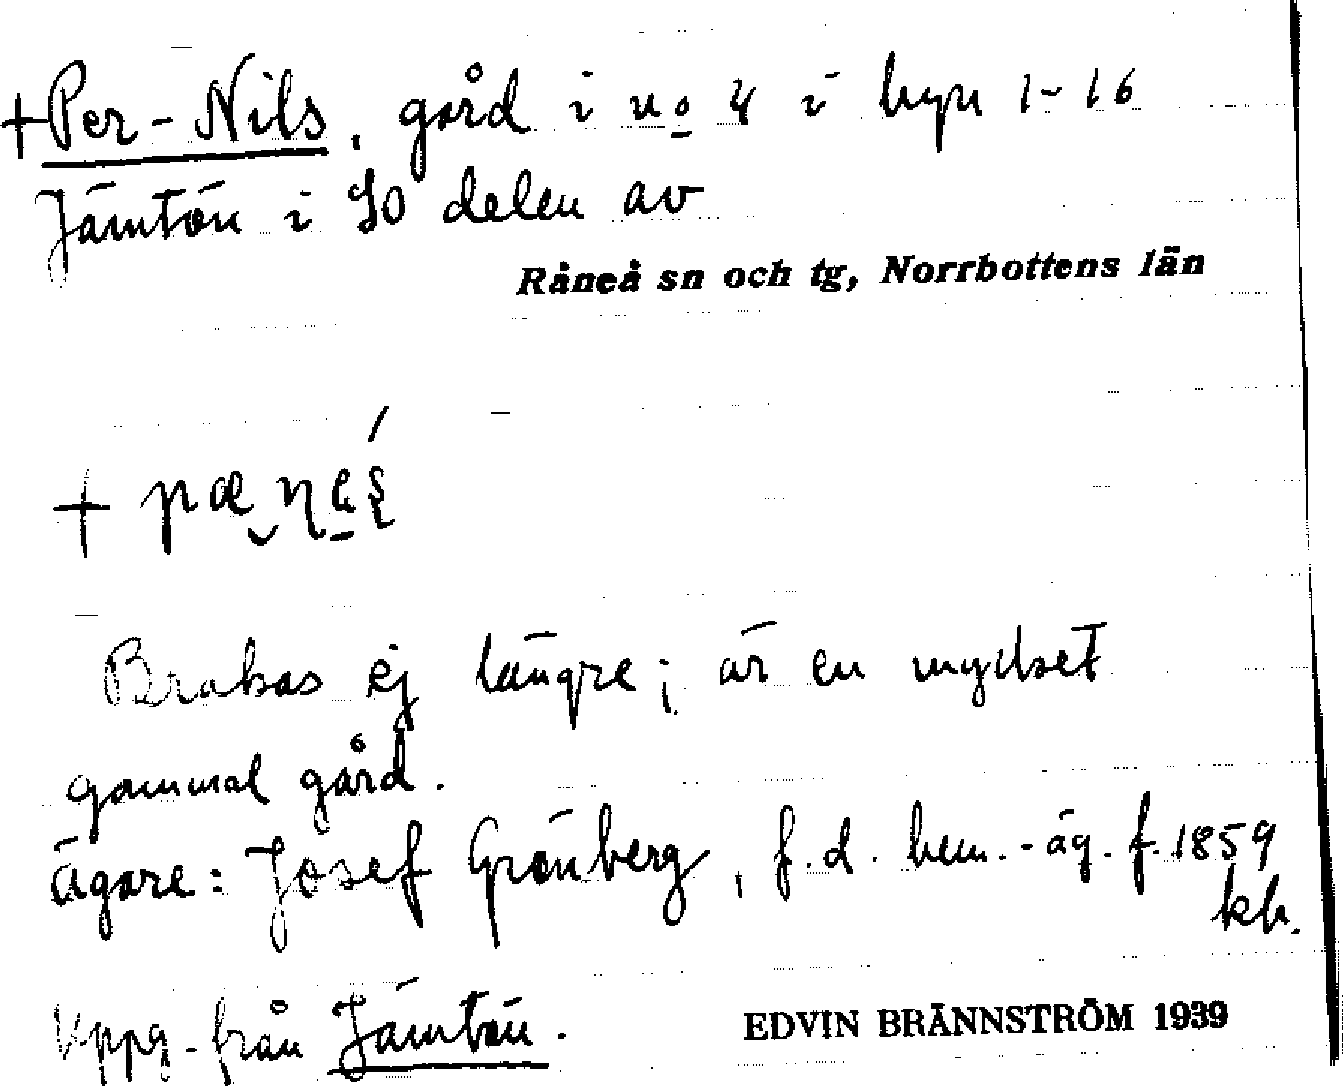 + Per-Nils, gård i no 4 i byn 1-16
Jämtön i SO delen av
Råneå sn och tg, Norrbottens län
Brukas ej längre; är en mycket
gammal gård.
Ägare: Josef Grönberg, f.d. hem.-äg. f. 1859
kh.
Uppg. från Jämtön.
EDVIN BRÄNNSTRÖM 1939